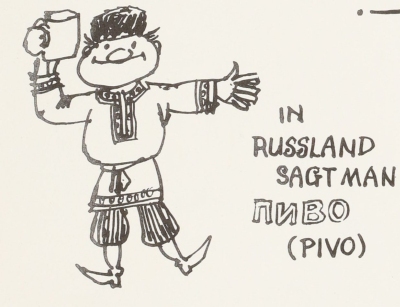 IN
RUSSLAND
SAGT MAN
ПИВО
(PIVO)